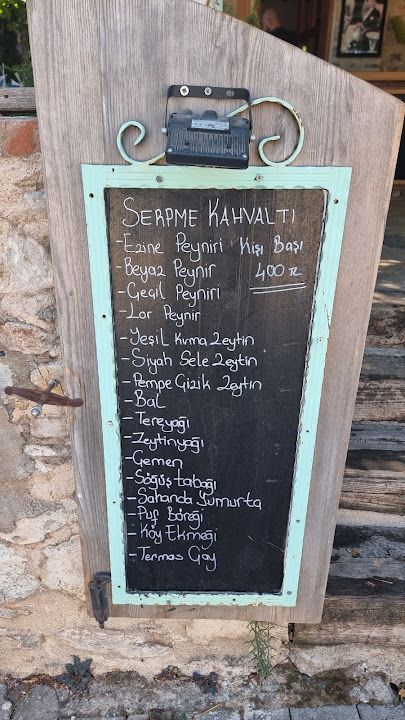 SERPME KAHVALTI
- Ezine Peyniri Kişi Başı
- Beyaz Peynir 400 TL
- Geçil Peyniri
- Lor Peynir
- Yeşil Kırma Zeytin
- Siyah Sele Zeytin
- Pempe Çizik Zeytin
- Bal
- Tereyağı
- Zeytinyağı
- Çemen
- Söğüş tabağı
- Sahanda Yumurta
- Puf Böreği
- Köy Ekmeği
- Termos Çay